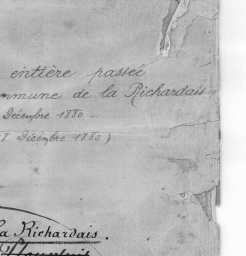 entière passée
mmune de la Richardais
Décembre 1880 -
8 Décembre 1880 )
La Richardais.